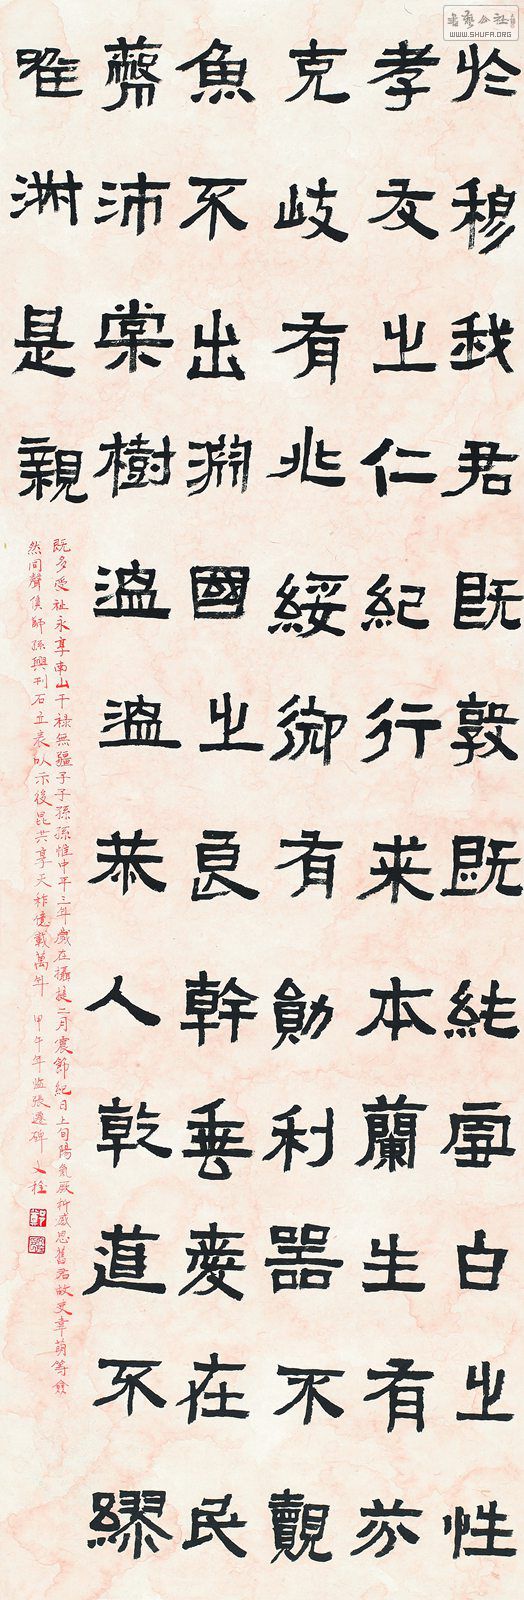 於穆我君既敦既純雪白之性
孝友之仁紀行来本蘭生有芬
克岐有兆綏御有勛利器不覿
魚不出淵國之良幹垂愛在民
蔽沛棠樹温温恭人乾道不繆
唯淑是親
既多受祉永享南山干禄無疆子子孫孫惟中平三年歲在攝提二月震節紀日上旬陽氣厥析感思舊君故吏韋萌等僉
然同聲賃師孫興刊石立表以示後昆共享天祚億載萬年 甲午年臨張遷碑
书艺公社
WWW.SHUFA.ORG